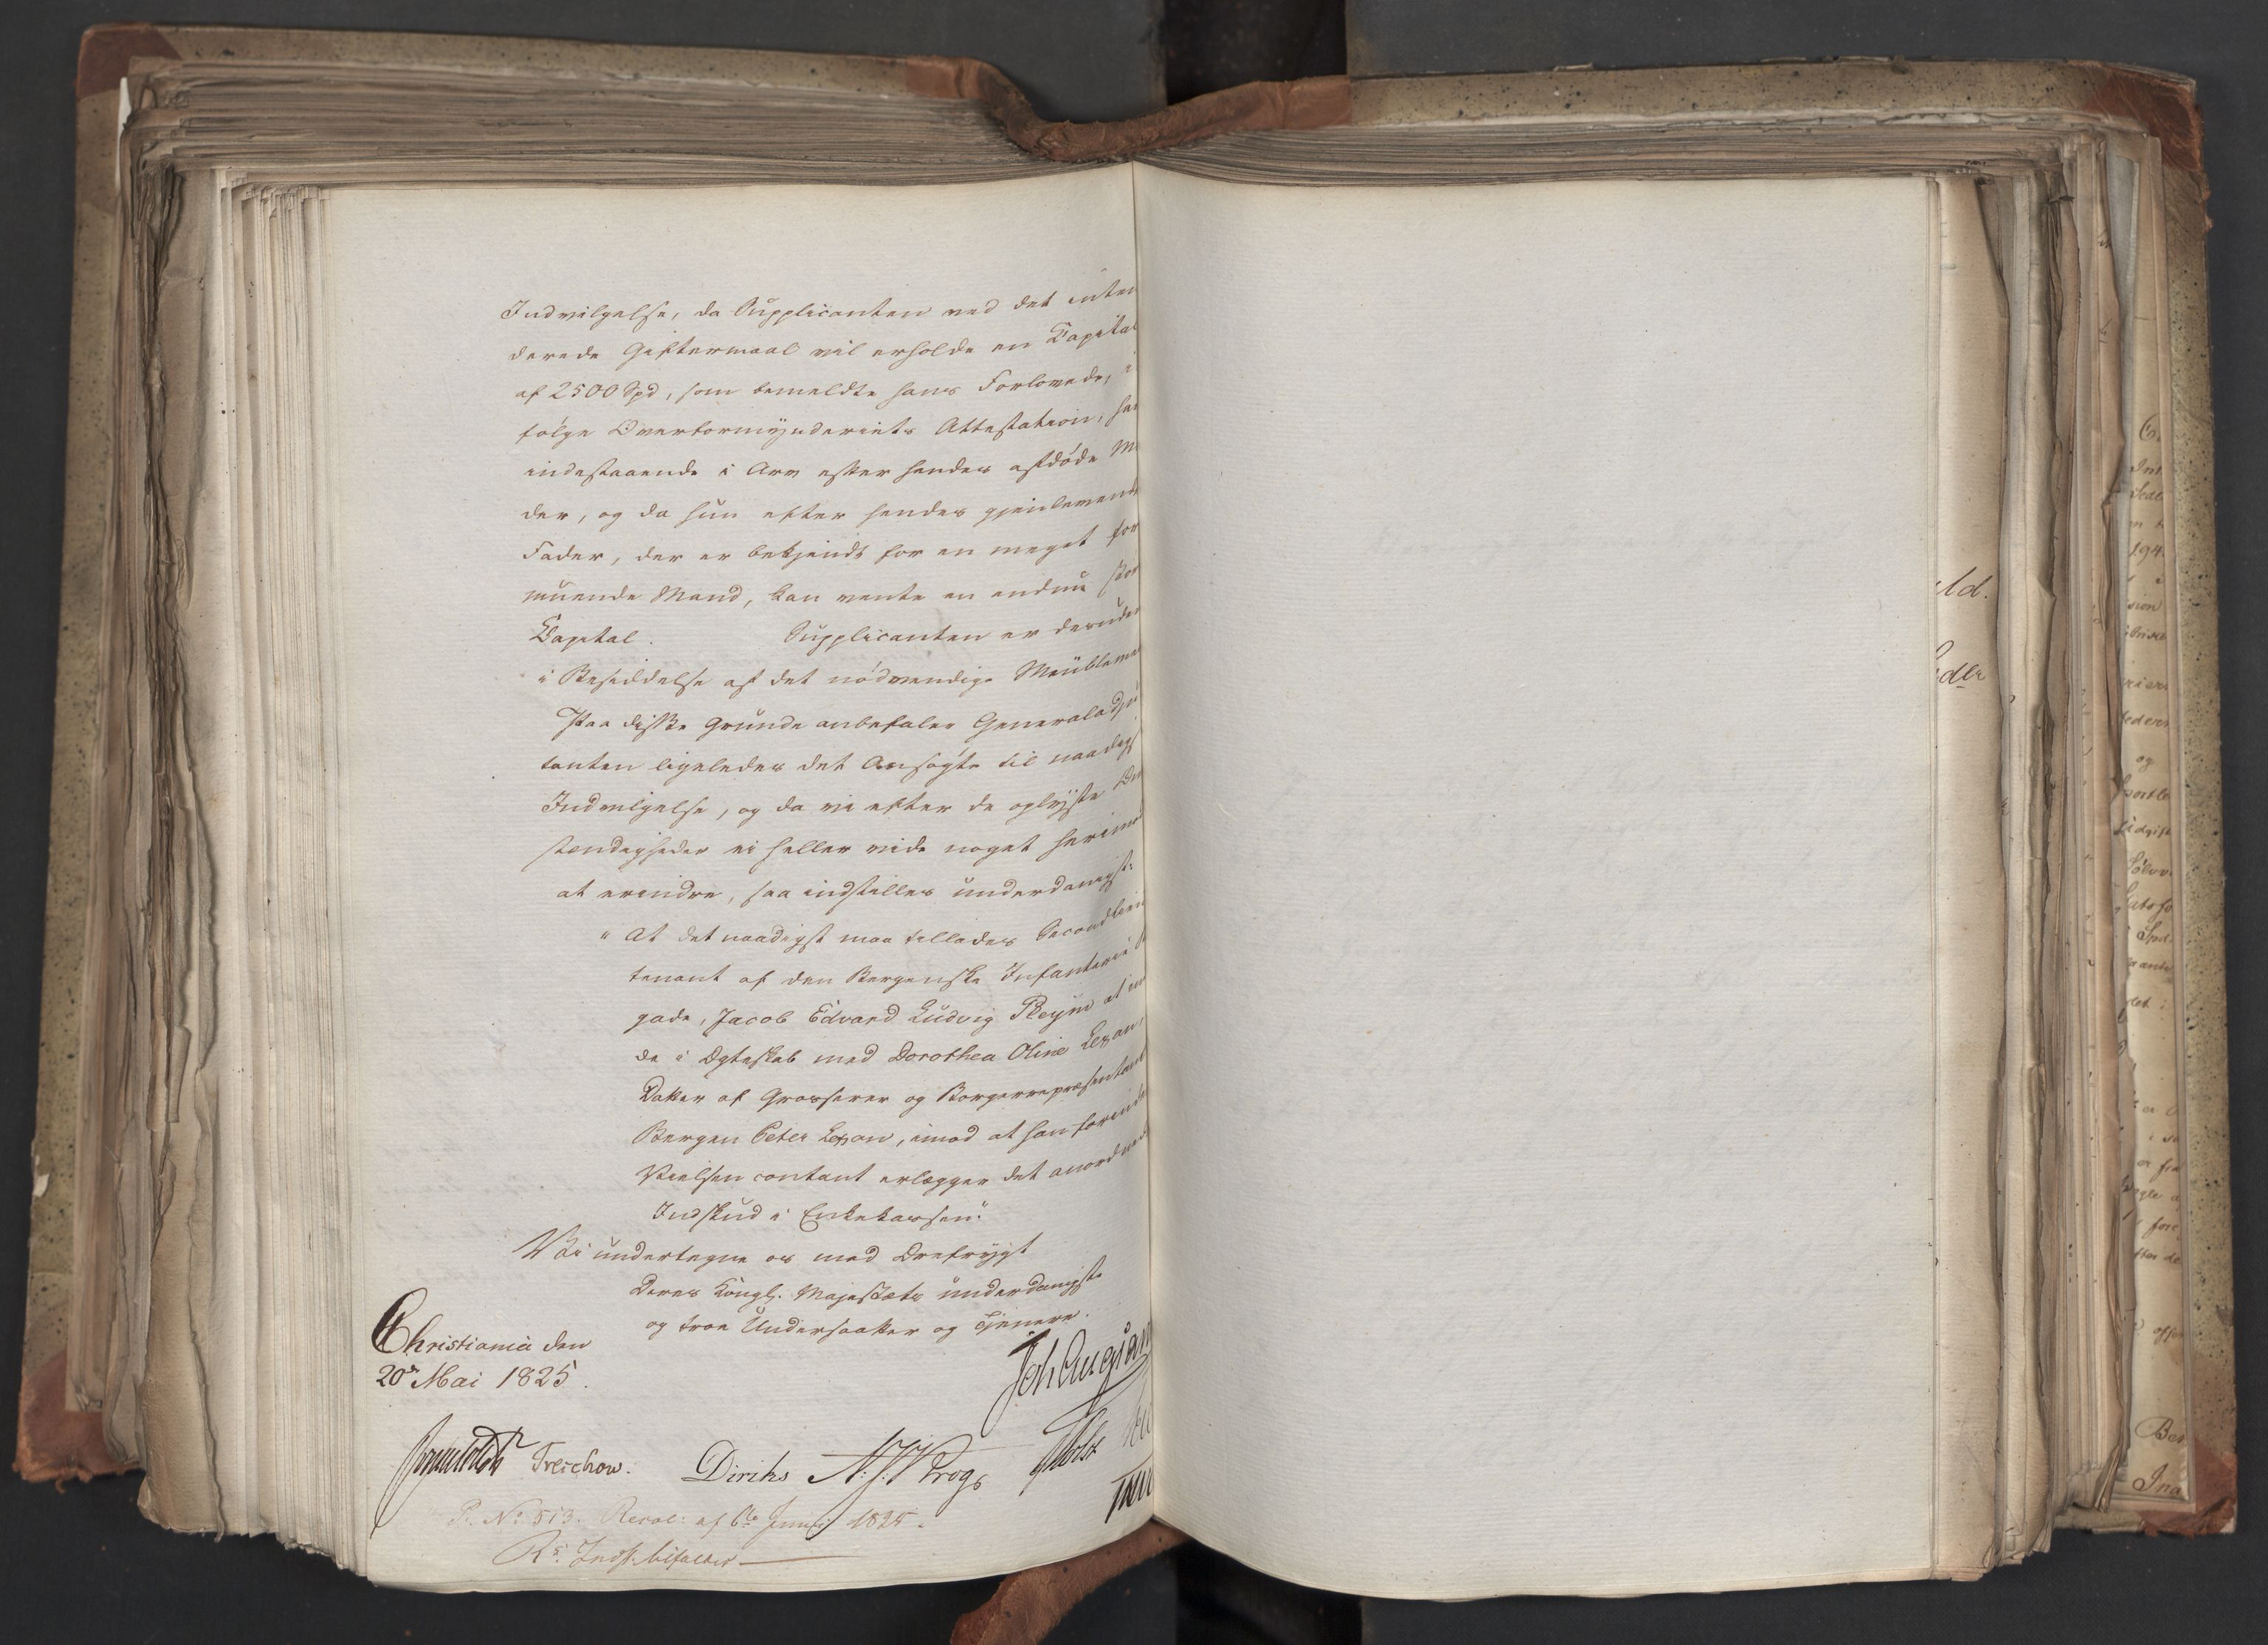 Indvilgelse, da Supplicanten ved det inten
derede Giftermaal vil erholde en Capital
af 2500 Spd, som bemeldte hans Forlovede, i
følge Overformynderiets Attestation, har
indestaaende i Arv efter hendes afdøde Mo
der, og da hun efter hendes gjenlevende
Fader, der er bekjendt for en meget for
muende Mand, kan vente en endnu stør
Capital. Supplicanten er desuden
i Besiddelse af det nødvendige Meubleme
Paa disse Grunde anbefaler Generaladju
tanten ligeledes det Ansøgte til naadigst
Indvilgelse, og da vi efter de oplyste Om
stændigheder ei heller vide noget herimod
at erindre, saa indstilles underdanigst:
" At det naadigst maa tillades Secondlieu
tenant af den Bergenske Infanterie B
gade, Jacob Edvard Ludvig Pleym at in
de i Ægteskab med Dorothea Oline Lexau,
Datter af Grosserer og Borgerrepræsentant
Bergen Peter Lexau, imod at han forinden
Vielsen contant erlægger det anordnede
Indskud i Enkekassen."
Vi undertegne os med Ærefrygt
Deres Kongl. Majestæts underdanigste
og troe Undersaatter og Tjenere.
Christiania den
20de Mai 1825.
Joh Aug San
Treschow. Diriks Holst
P. No 513. Resol: af 6te Junii 1825.
Rs. Indst. bifaldes
ld.